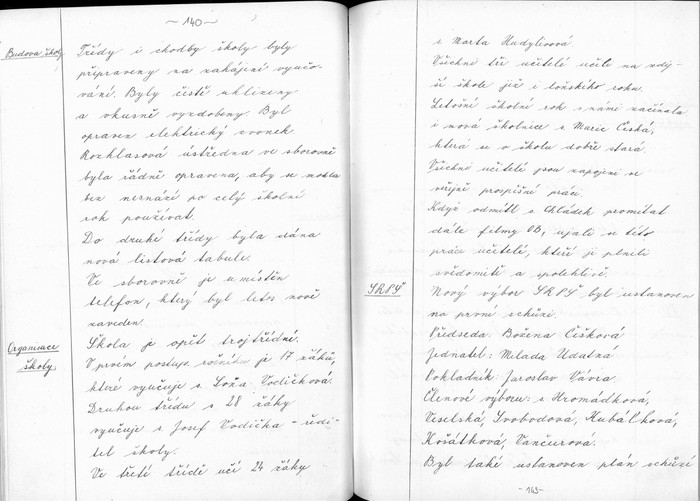 ~ 140 ~
Budova školy
Třídy i chodby školy byly
připraveny na zahájení vyučo-
vání. Byly čistě uklizeny
a vkusně vyzdobeny. Byl
opraven elektrický zvonek.
Rozhlasová ústředna ve sborovně
byla řádně opravena, aby se mohla
bez nesnází po celý školní
rok používat.
Do druhé třídy byla dána
nová listová tabule.
Ve sborovně je umístěn
telefon, který byl letos nově
zaveden.
Organisace
školy
Škola je opět trojtřídní.
V prvém postup. ročníku je 17 žáků,
které vyučuje s. Soňa Vodičková.
Druhou třídu s 28 žáky
vyučuje s. Josef Vodička - ředi-
tel školy.
Ve třetí třídě učí 24 žáky
s. Marta Hudylivová
Všichni tři učitelé učili na zdej-
ší škole již i loňského roku.
Letošní školní rok s námi začínala
i nová školnice s. Marie Česká,
která se o školu dobře stará.
Všichni učitelé jsou zapojeni ve
veřejně prospěšné práci.
Když odmítl s. Chládek promítat
dále filmy OB, ujali se této
práce učitelé, kteří je plnili
svědomitě a spolehlivě.
SRPŠ
Nový výbor SRPŠ byl ustanoven
na první schůzi.
Předseda: Božena Čišková
Jednatel: Milada Udatná
Pokladník: Jaroslav Vávra
Členové výboru: s. Hromádková,
Veselská, Svobodová, Hubálková,
Košátková, Vančurová.
Byl také ustanoven plán schůzí